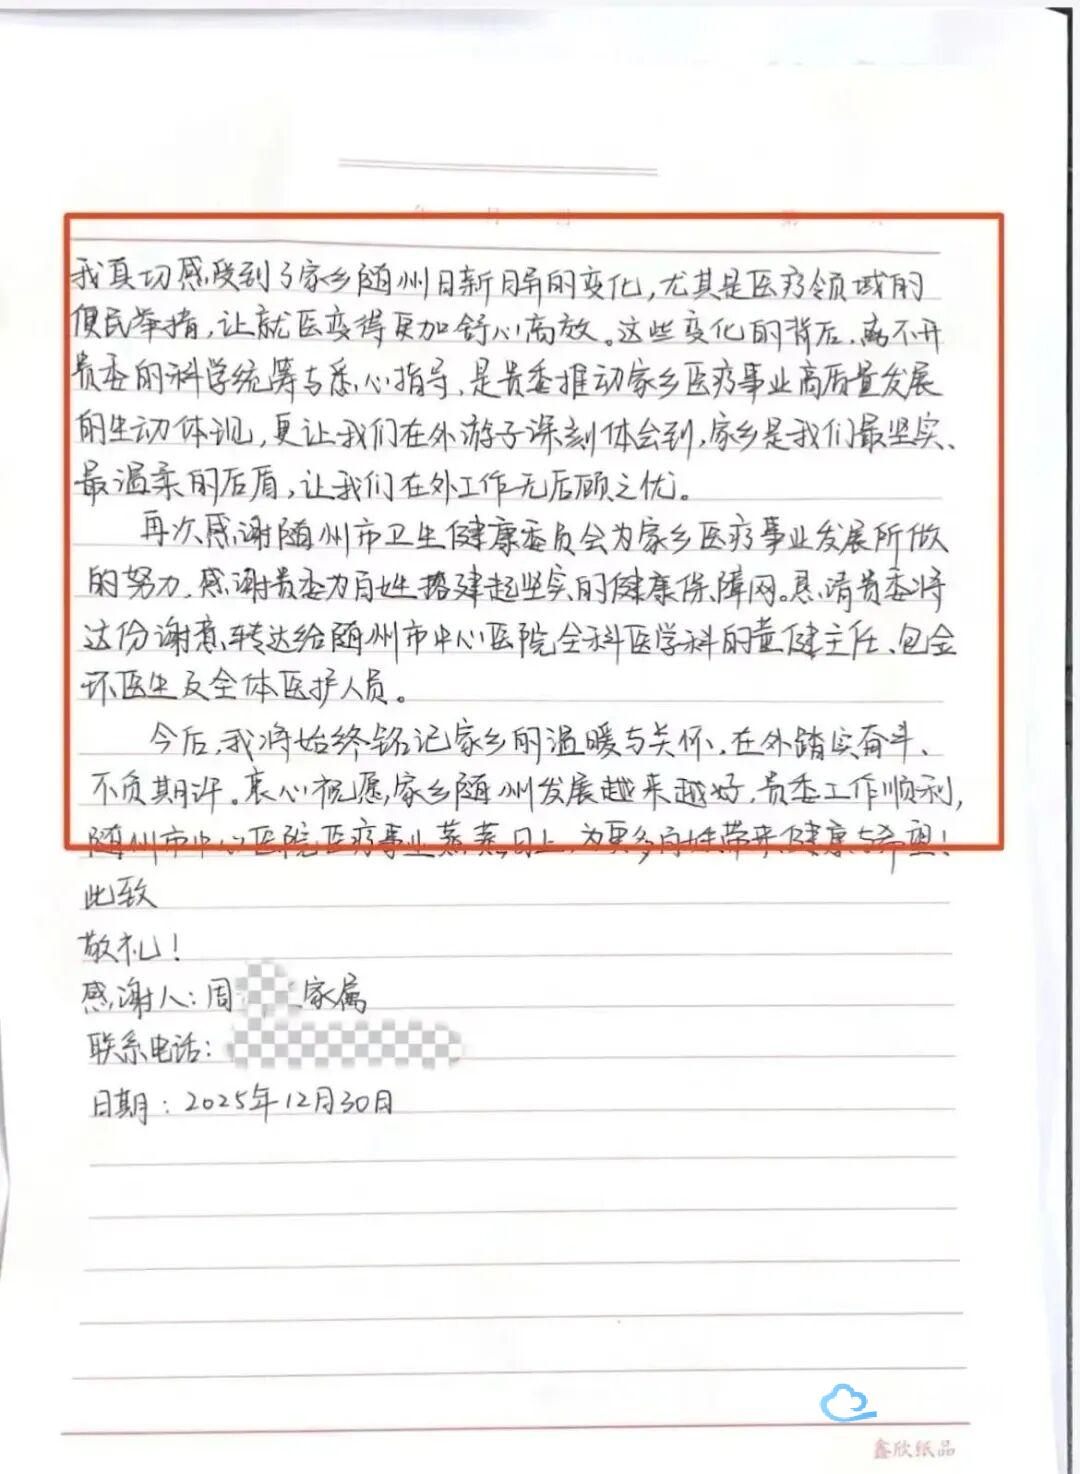 我真切感受到了家乡随州日新月异的变化,尤其是医疗领域的
便民举措,让就医变得更加舒心高效。这些变化的背后,离不开
贵委的科学统筹与悉心指导,是贵委推动家乡医疗事业高质量发展
的生动体现,更让我们在外游子深刻体会到,家乡是我们最坚实、
最温柔的后盾,让我们在外工作无后顾之忧。
再次感谢随州市卫生健康委员会为家乡医疗事业发展所做
的努力,感谢贵委为百姓搭建起坚实的健康保障网。恳请贵委将
这份谢意,转达给随州市中心医院全科医学科的童健主任、包金
环医生及全体医护人员。
今后,我将始终铭记家乡的温暖与关怀,在外踏实奋斗、
不负期许。衷心祝愿,家乡随州发展越来越好,贵委工作顺利,
随州市中心医院医疗事业蒸蒸日上,为更多百姓带来健康与希望!
此致
敬礼!
感谢人:周 家属
联系电话:
日期:2025年12月30日
鑫欣纸品